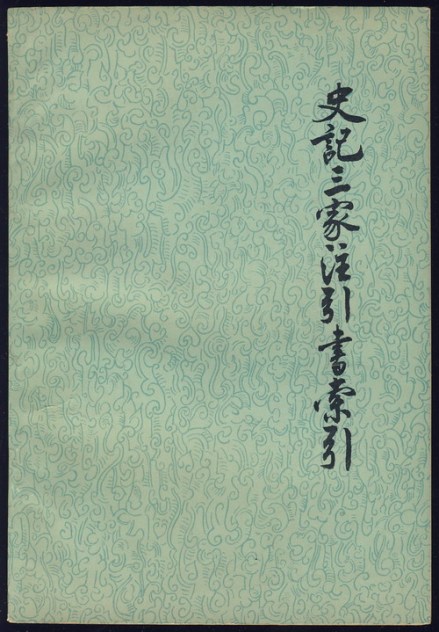 史記三家注引書索引